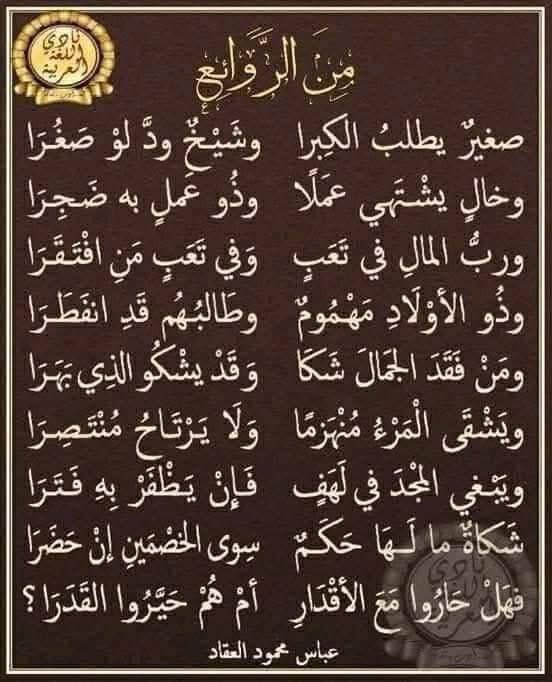 نادي
اللغة
العربية
مِنَ الرَّوَائِعِ
صغيرٌ يطلبُ الكِبرا وشَيْخٌ ودَّ لوْ صَغُرَا
وخالٍ يشْتَهي عمَلًا وذُو عَملٍ به ضَجِرَا
وربُّ المالِ في تَعَبٍ وَفي تَعَبٍ مَنِ افْتَقَرَا
وذُو الأوْلَادِ مَهْمُومٌ وطَالبُهُم قَدِ انفَطَرَا
ومَنْ فَقَدَ الجَمالَ شَكَا وَقَدْ يشْكُو الذِي بَهَرَا
ويَشْقَى الْمَرْءُ مُنْهَزمًا وَلَا يَرْتَاحُ مُنْتَصِرَا
ويَبْغي المجْدَ في لَهَفٍ فَإنْ يَظْفَرْ بِهِ فَتَرَا
شَكاةٌ ما لَهَا حَكَمٌ سِوى الخَصْمَينِ إنْ حَضَرَا
فهَلْ حَارُوا مَعَ الأقْدَارِ أمْ هُمْ حَيَّرُوا القَدَرَا ؟
عباس محمود العقاد